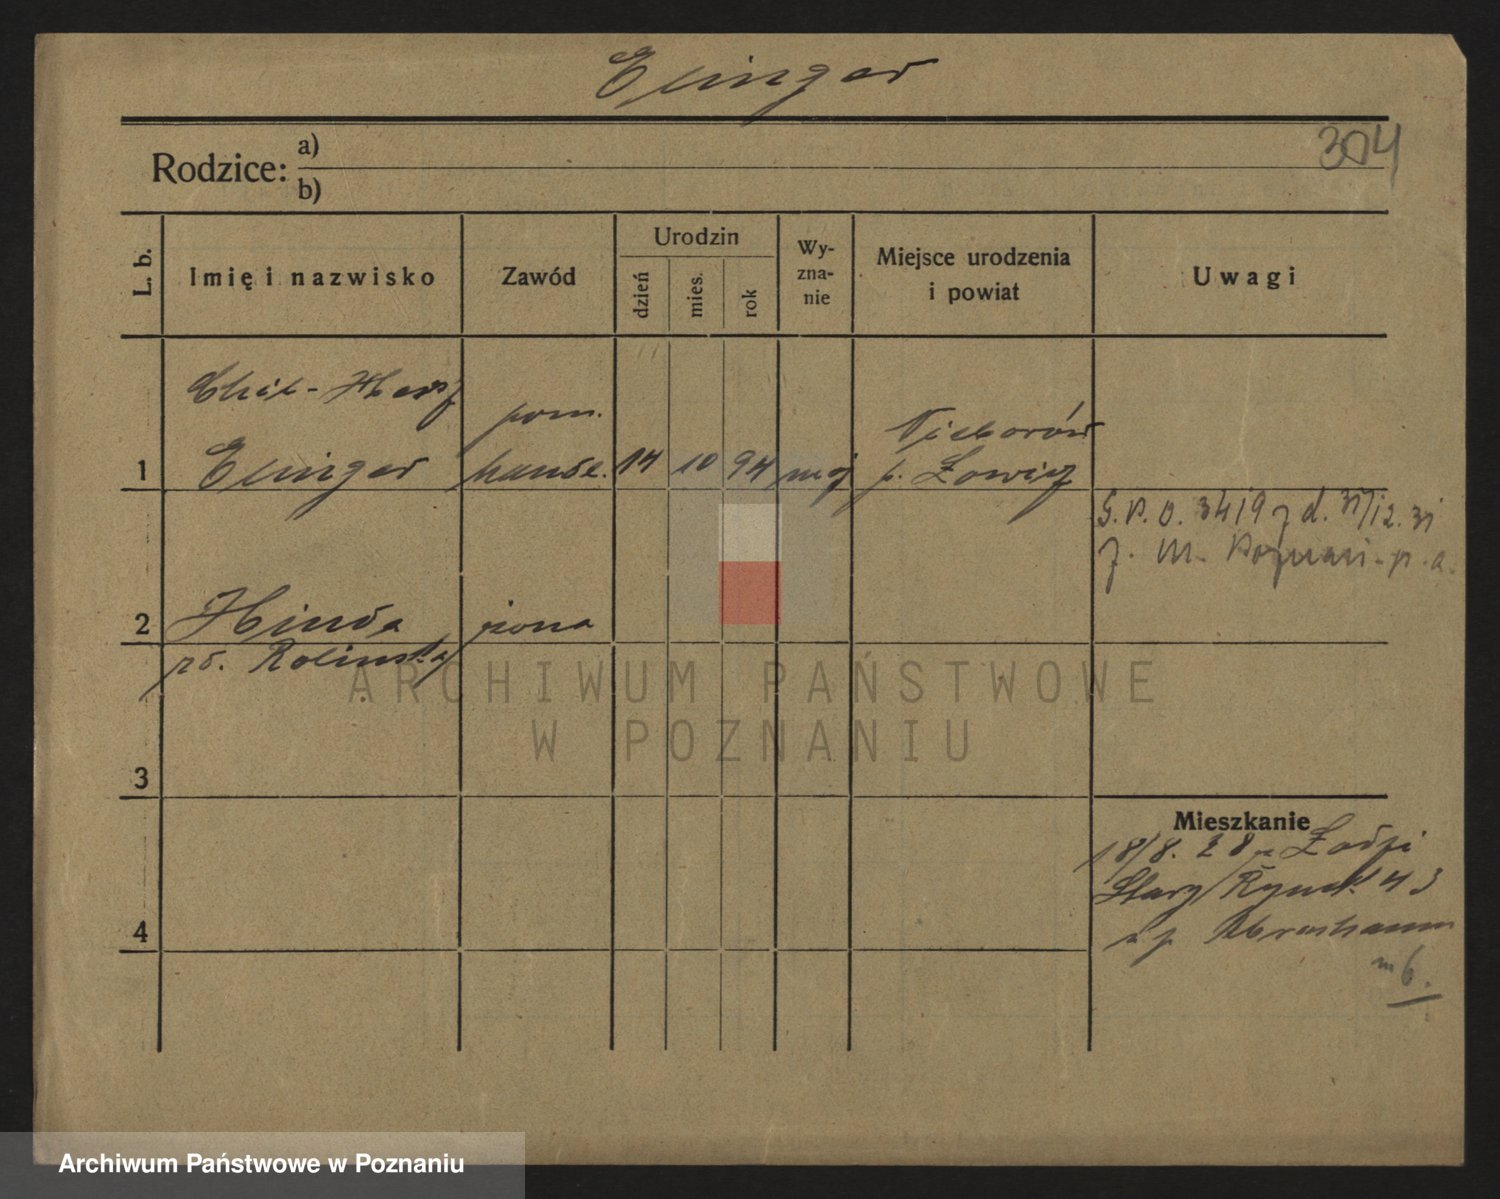 Elinger
304
Rodzice: a)
b)
L. b.
Imię i nazwisko
Zawód
Urodzin
dzień
mies.
rok
Wy-
zna-
nie
Miejsce urodzenia
i powiat
Uwagi
Chil-Hersz
pom.
Nieborów
1 Elinger handl. 14 10 94 mojż p. Łowicz
S.P.O. 3419 z d. 31/12.31
z. M. Poznań - p. a.
2 Hinda żona
zd. Rolinska
ARCHIWUM PAŃSTWOWE
W POZNANIU
3
Mieszkanie
18/8. 28 z Łodzi
Stary Rynek 43
Abraham
4
m 6.
Archiwum Państwowe w Poznaniu